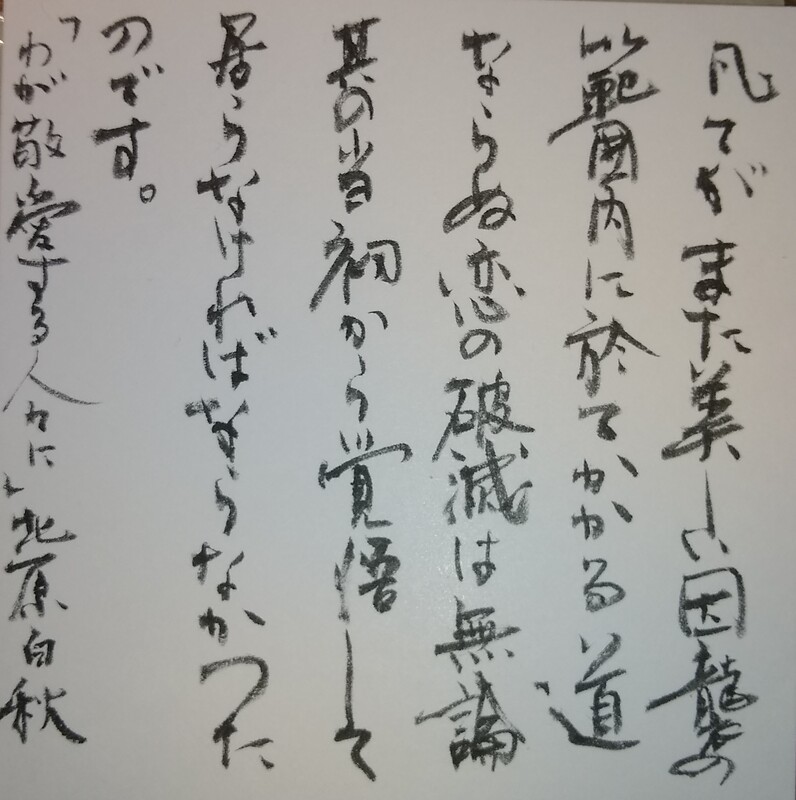 凡てがまた美しい因襲の
範囲内に於てかかる道
ならぬ恋の破滅は無論
其の当初から覚悟して
居らなければならなかつた
のです。
「わが敬愛する人々に」北原白秋